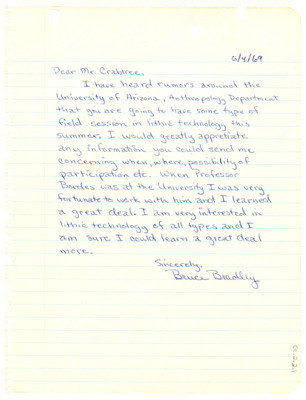 6/4/69
Dear Mr. Crabtree,
I have heard rumors around the
University of Arizona, Anthropology Department
that you are going to have some type of
field session in lithic technology this
summer. I would greatly appretiate
any information you could send me
concerning when, where, possibility of
participation etc. When Professor
Bordes was at the University I was very
fortunate to work with him and I learned
a great deal. I am very interested in
lithic technology of all types and I
am sure I could learn a great deal
more.
Sincerely,
Bruce Bradley